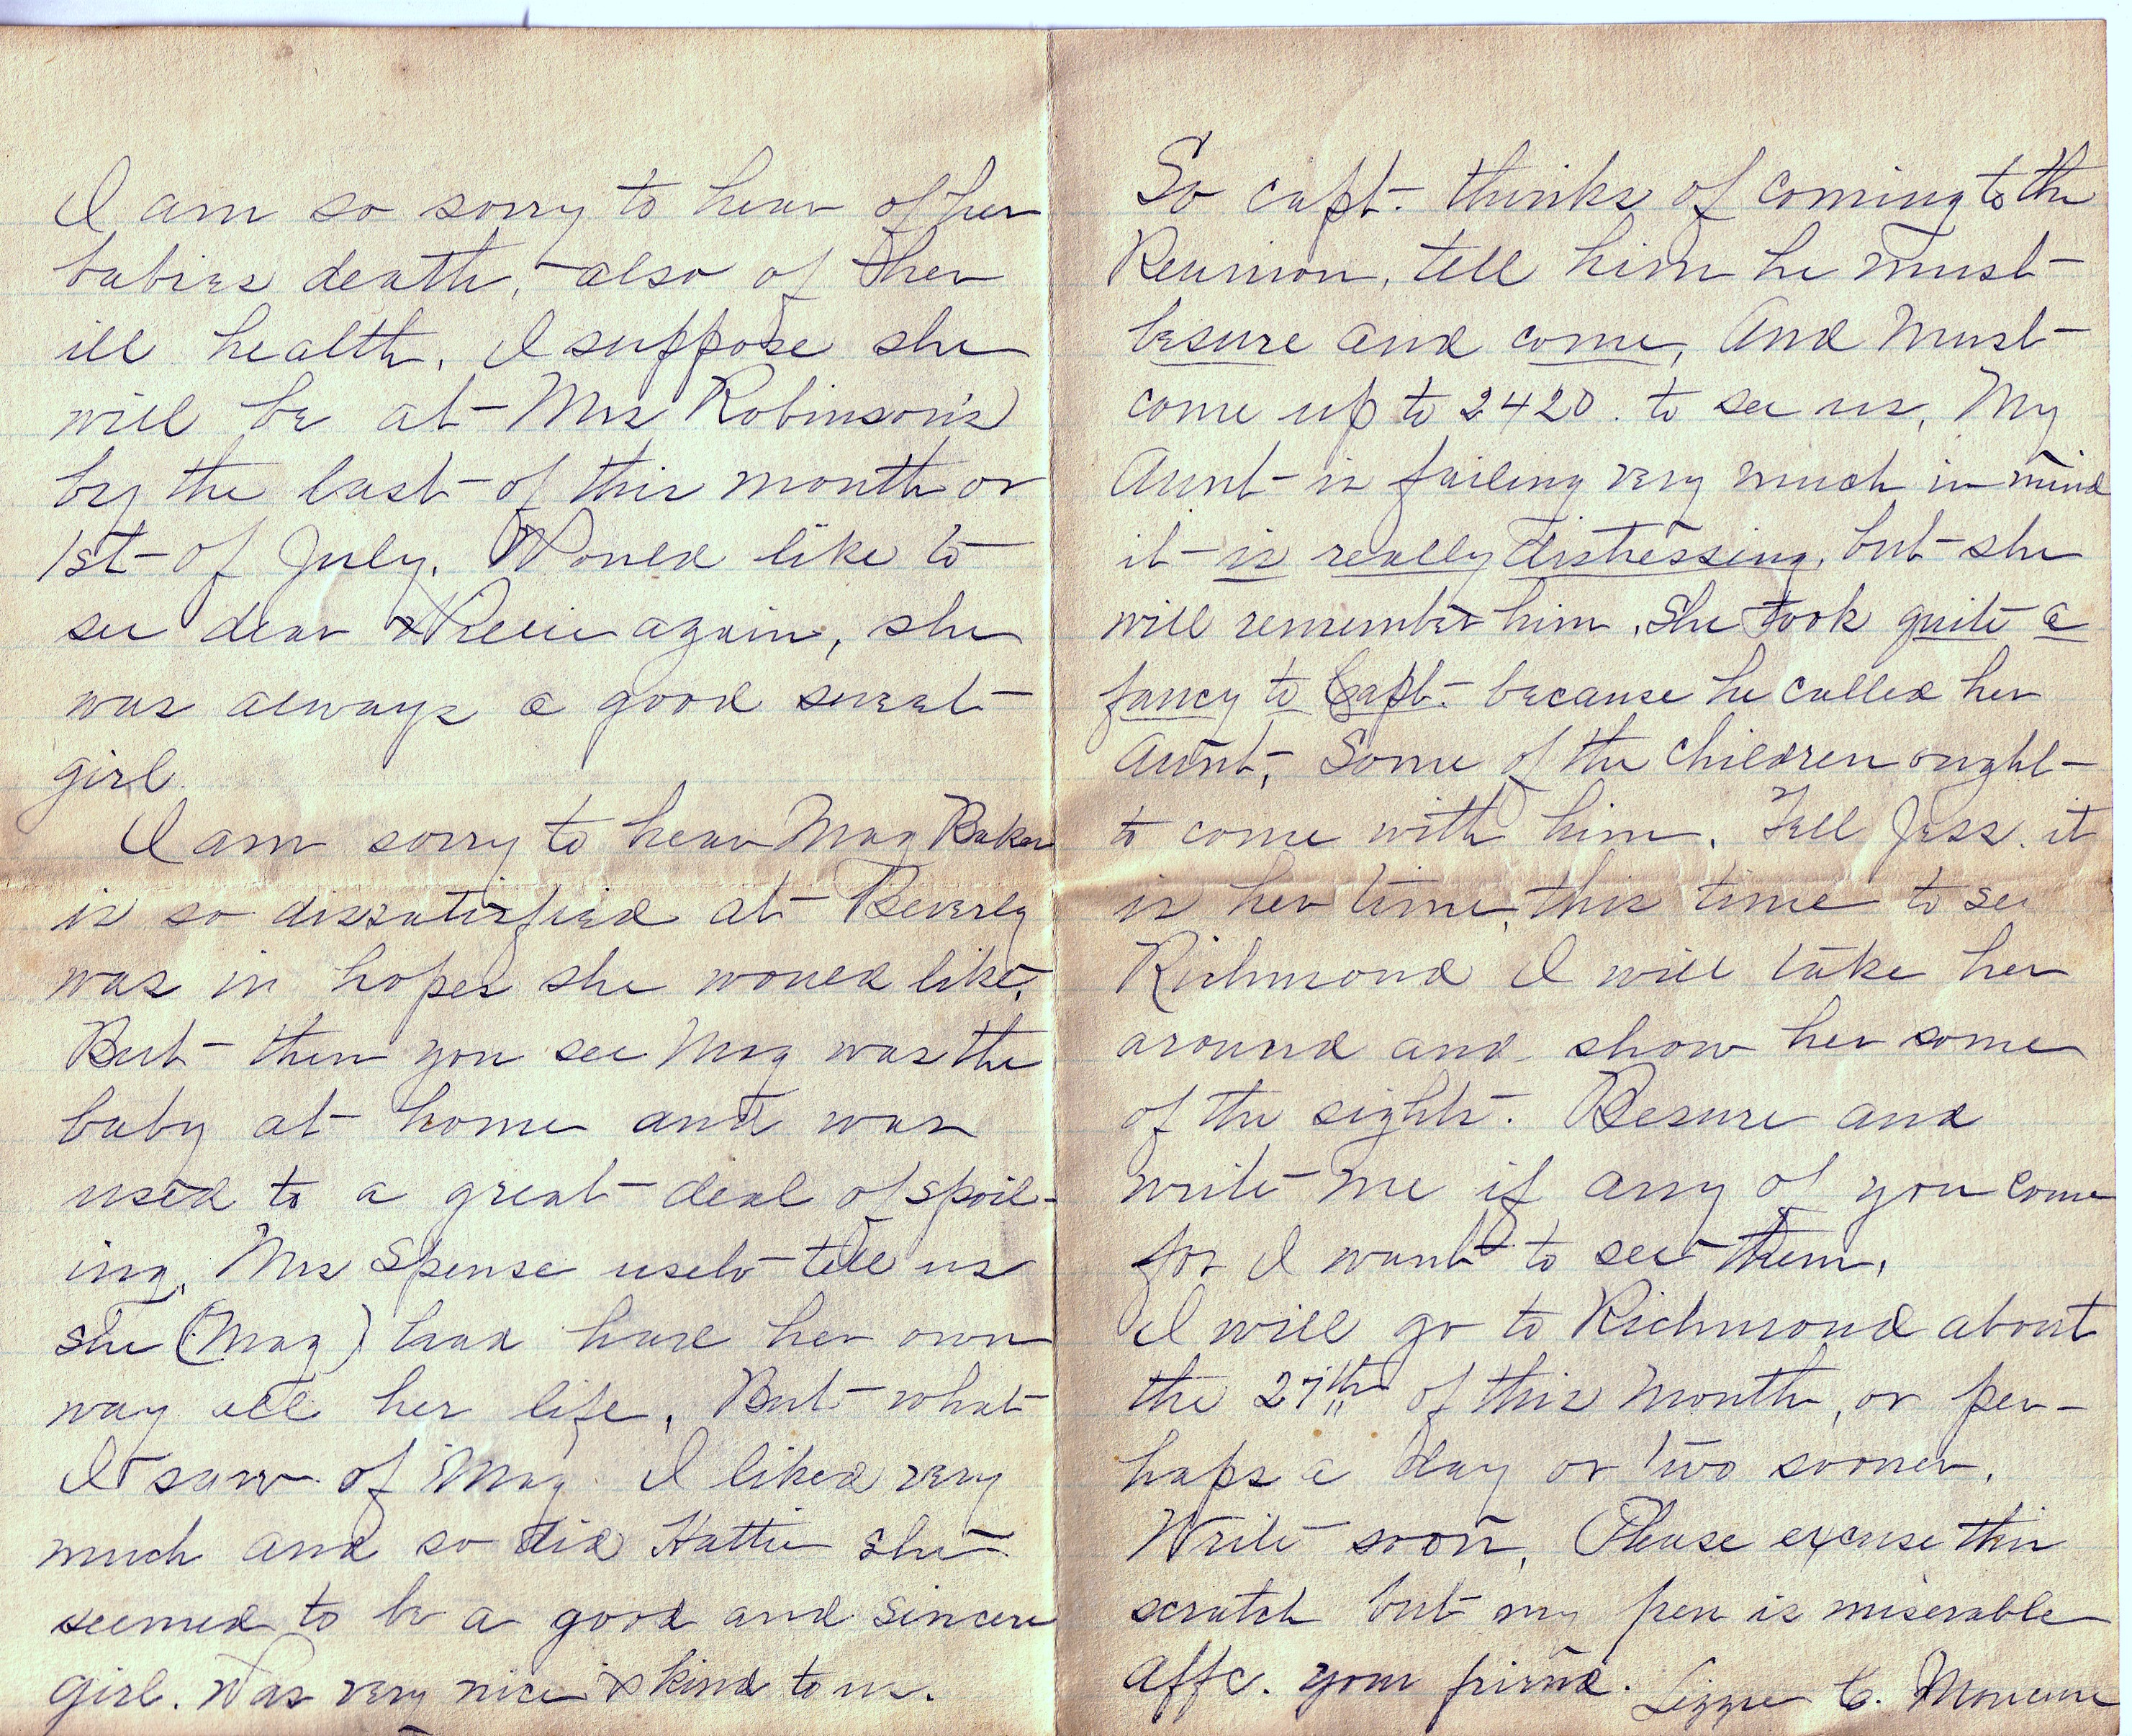 I am so sorry to hear of her
babies death, also of her
ill health. I suppose she
will be at Mrs Robinson's
by the last of this month or
1st of July. Would like to
see dear again, she
was always a good sweet
girl.
I am sorry to hear Mag Baker
is so dissatisfied at Beverly
was in hopes she would like.
But then you see Mag was the
baby at home and was
used to a great deal of spoil-
ing. Mrs Spense useto tell us
she (Mag) had have her own
way all her life. But what
I saw of Mag I liked very
much and so did Hattie she
seemed to be a good and sincere
girl. Was very nice & kind to us.
So capt. thinks of coming to the
Reunion, tell him he must
besure and come, And must
come up to 2420. to see us, My
Aunt is failing very much in mind
it is really distressing, but she
will remember him. She took quite a
fancy to Capt. because he called her
Aunt, Some of the children ought
to come with him. Tell Jess. it
is her time, this time to see
Richmond I will take her
around and show her some
of the sights. Besure and
write me if any of you come
for I want to see them.
I will go to Richmond about
the 27th of this month, or per-
haps a day or two sooner.
Write soon, Please excuse this
scratch but my pen is miserable
Affc. your friend. Lizzie C.